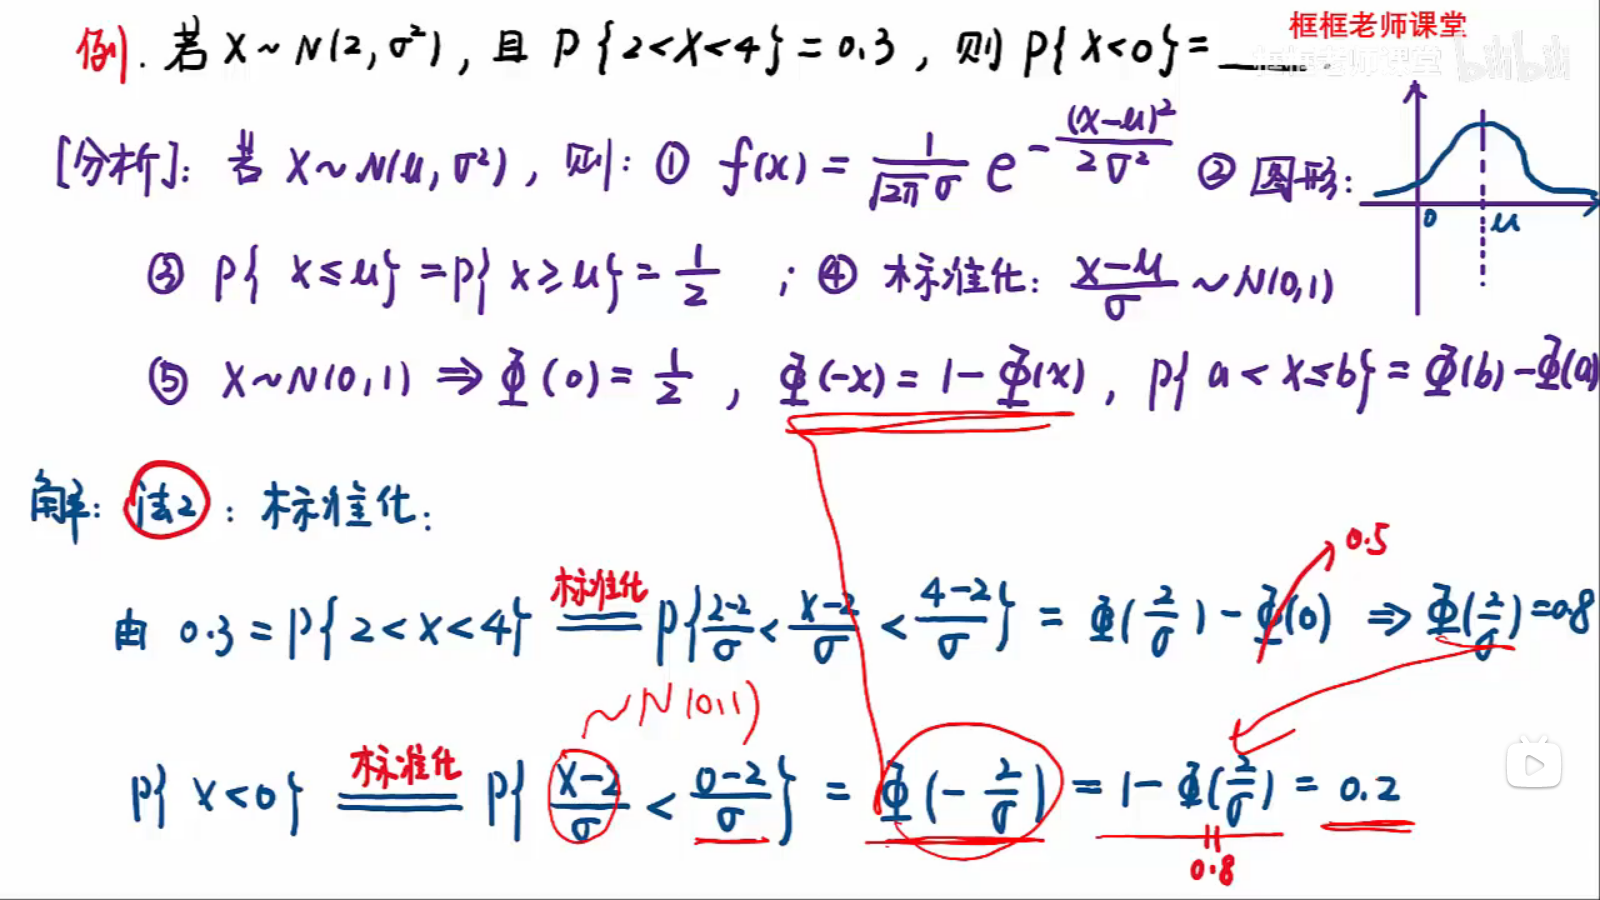 框框老师课堂
框框老师课堂 bilibili
例. 若 X~N(2,σ²), 且 P{2<X<4}=0.3, 则 P{X<0}=____.
[分析]: 若 X~N(μ,σ²), 则: ① f(x)=1/(√2π σ) e^-(x-μ)²/2σ² ② 图形:
0 μ
③ P{X≤μ}=P{X≥μ}=1/2 ; ④ 标准化: (X-μ)/σ ~N(0,1)
⑤ X~N(0,1) ⇒ Φ(0)=1/2, Φ(-x)=1-Φ(x), P{a<X≤b}=Φ(b)-Φ(a)
解: 法2: 标准化:
0.5
由 0.3=P{2<X<4} 标准化 P{(2-2)/σ<(X-2)/σ<(4-2)/σ}=Φ(2/σ)-Φ(0) ⇒ Φ(2/σ)=0.8
~N(0,1)
P{X<0} 标准化 P{(X-2)/σ<(0-2)/σ}=Φ(-2/σ)=1-Φ(2/σ)=0.2
0.8